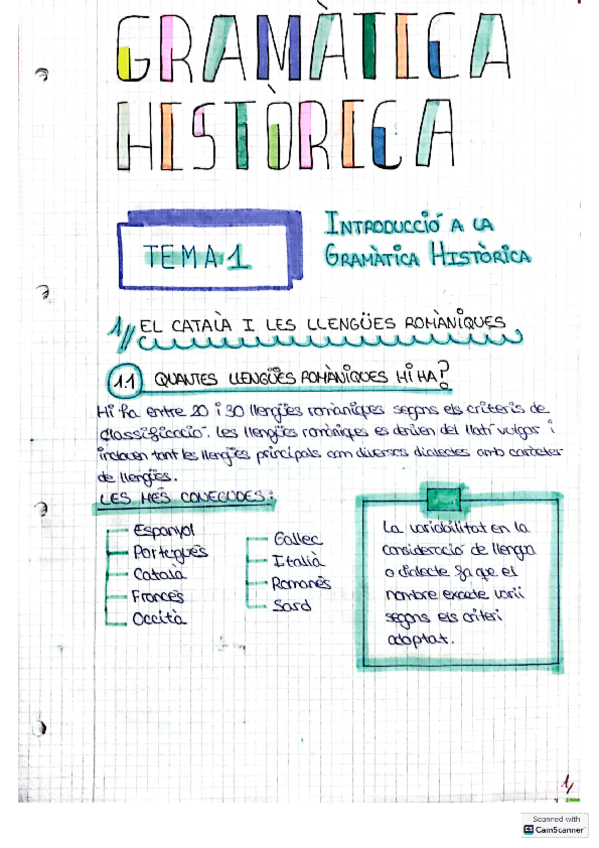 GRAMÀTICA
HISTÒRICA
TEMA 1
INTRODUCCIÓ A LA
GRAMÀTICA HISTÒRICA
1// EL CATALÀ I LES LLENGÜES ROMÀNIQUES
1.1 QUANTES LLENGÜES ROMÀNIQUES HI HA?
Hi ha entre 20 i 30 llengües romàniques segons els criteris de
classificació. Les llengües romàniques es deriven del llatí vulgar i
inclouen tant les llengües principals com diversos dialectes amb caràcter
de llengües.
LES MÉS CONEGUDES:
Espanyol
Portuguès
Català
Francès
Occità
Gallec
Italià
Romanès
Sard
La variabilitat en la
consideració de llengua
o dialecte fa que el
nombre exacte varii
segons els criteri
adoptat.
1/
Scanned with
CS CamScanner